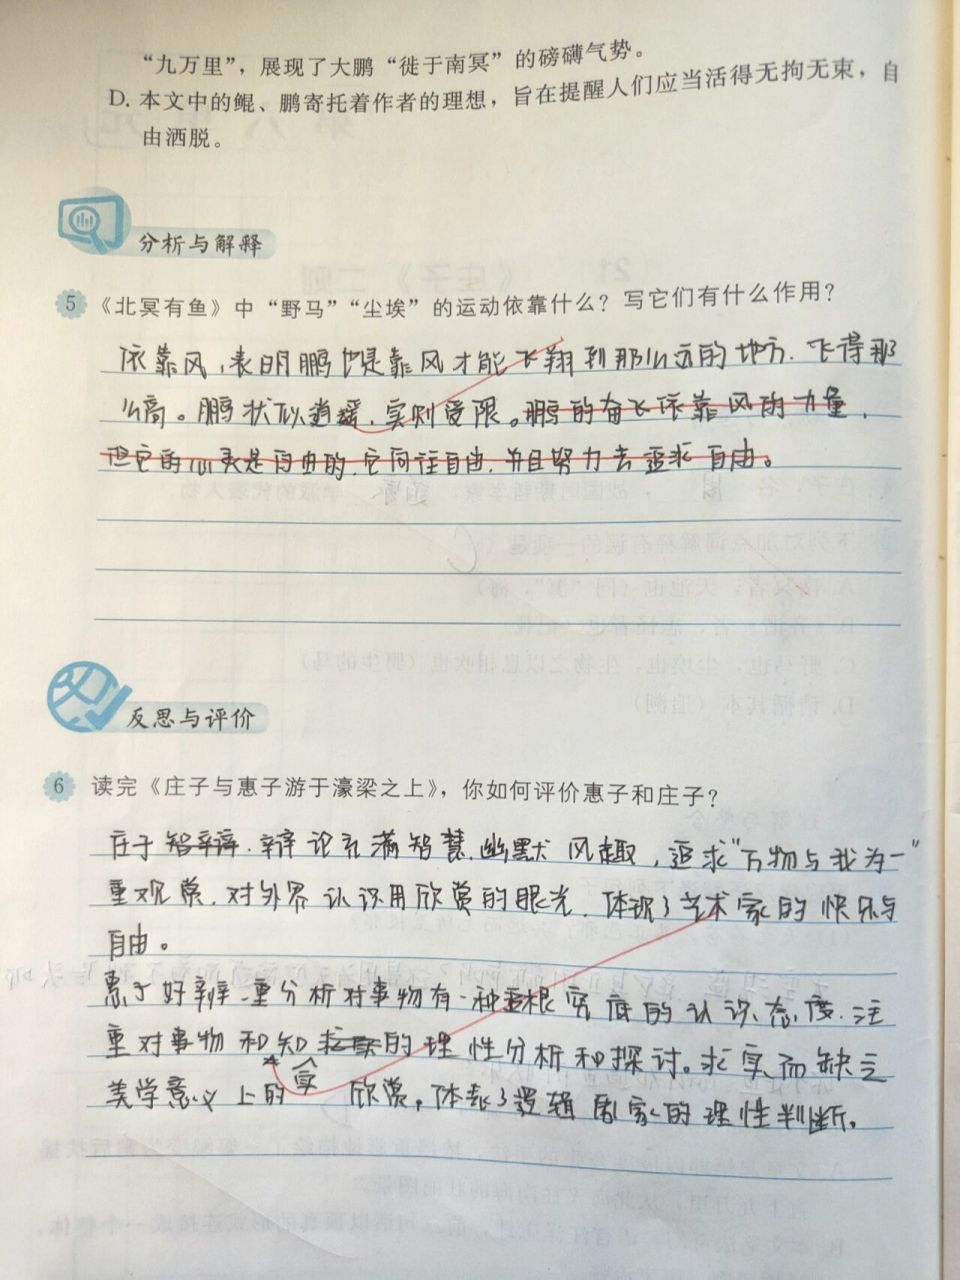 “九万里”，展现了大鹏“徙于南冥”的磅礴气势。
D. 本文中的鲲、鹏寄托着作者的理想，旨在提醒人们应当活得无拘无束，自
由洒脱。
分析与解释
5 《北冥有鱼》中“野马”“尘埃”的运动依靠什么？写它们有什么作用？
依靠风，表明鹏也是靠风才能飞翔到那么远的地方，飞得那
么高。鹏状似逍遥，实则受限。鹏的奋飞依靠风的力量，
但它的心灵是自由的，它向往自由，并且努力去追求自由。
反思与评价
6 读完《庄子与惠子游于濠梁之上》，你如何评价惠子和庄子？
庄子智辩，辩论充满智慧，幽默风趣，追求“万物与我为一”
重观赏，对外界认识用欣赏的眼光，体现了艺术家的快乐与
自由。
惠子好辨，重分析对事物有一种寻根究底的认识态度，注
重对事物和知的理性分析和探讨。求实而缺乏
美学意义上的 欣赏，体表了逻辑家的理性判断。